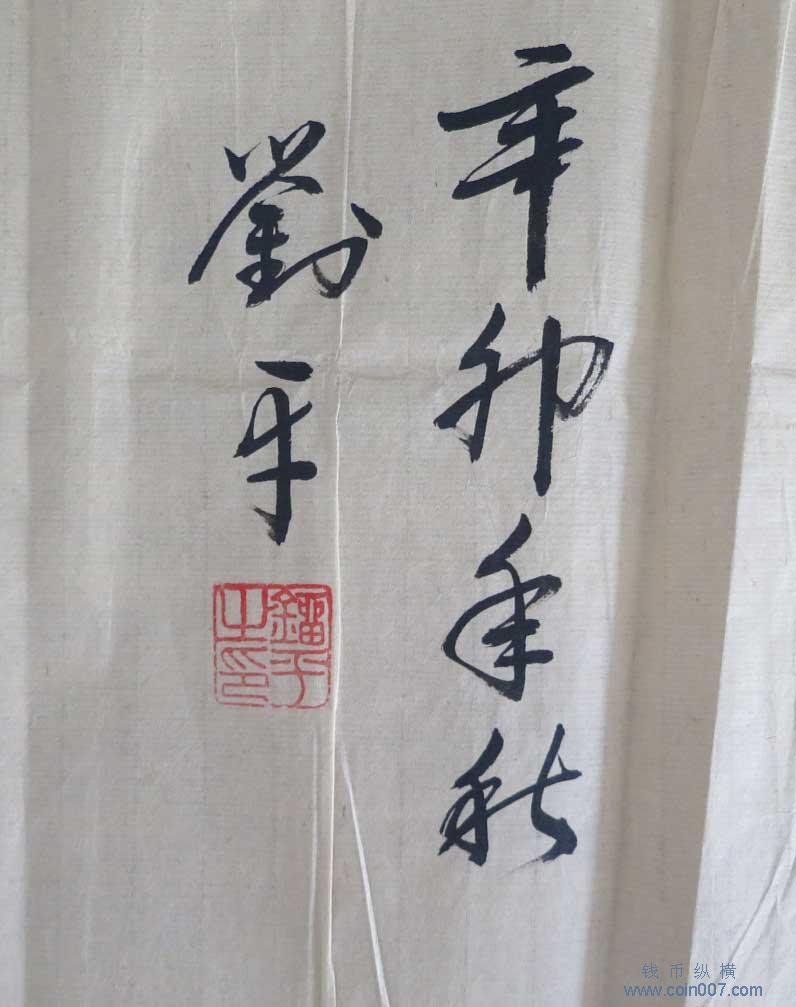 辛卯年秋
劉平
鎦平之印
钱币纵横
www.coin007.com